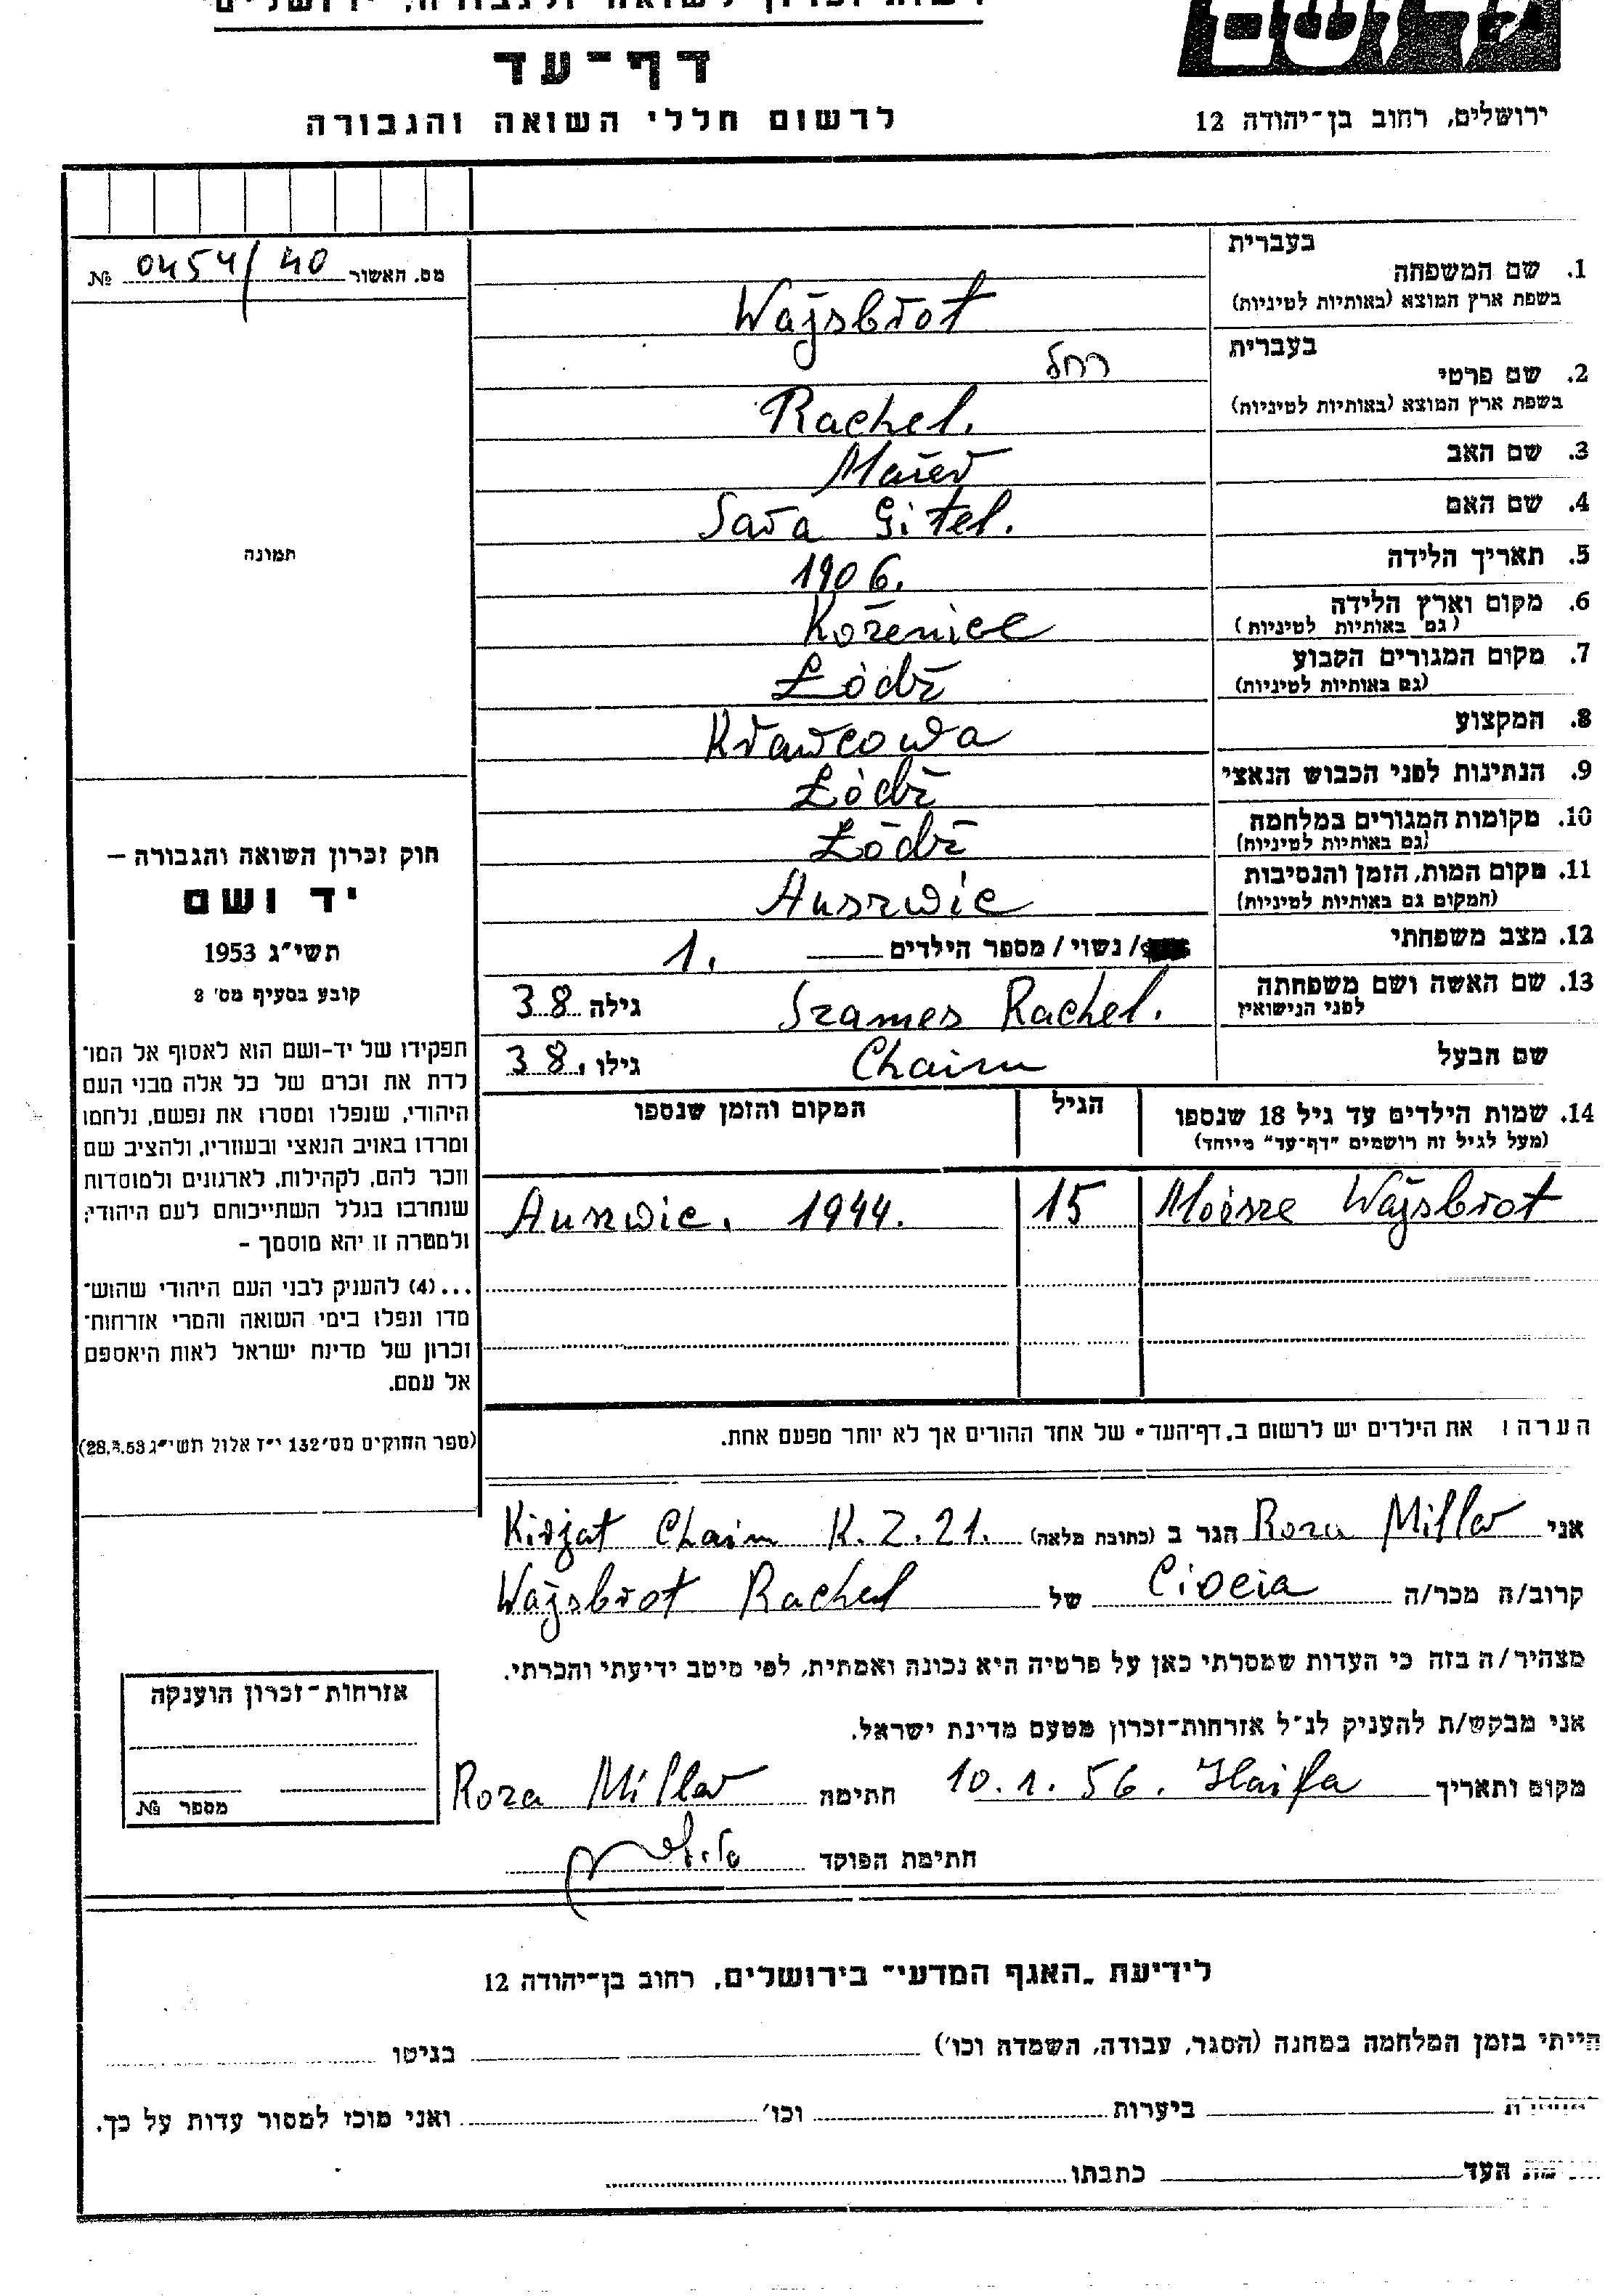 דף־עד
לרשום חללי השואה והגבורה
ירושלים, רחוב בן־יהודה 12
מס. האשור 0454/40 №
תמונה
חוק זכרון השואה והגבורה –
יד ושם
תשי״ג 1953
קובע בסעיף מס׳ 2
תפקידו של יד-ושם הוא לאסוף אל המו־
לדת את זכרם של כל אלה מבני העם
היהודי, שנפלו ומסרו את נפשם, נלחמו
ומרדו באויב הנאצי ובעוזריו, ולהציב שם
וזכר להם, לקהילות, לארגונים ולמוסדות
שנחרבו בגלל השתייכותם לעם היהודי;
ולמטרה זו יהא מוסמך –
...(4) להעניק לבני העם היהודי שהוש־
מדו ונפלו בימי השואה והמרי אזרחות־
זכרון של מדינת ישראל לאות היאספם
אל עמם.
(ספר החוקים מס׳ 132 י״ז אלול תשי״ג 28.8.53)
1. שם המשפחה בעברית
בשפת ארץ המוצא (באותיות לטיניות) Wajsbrot
2. שם פרטי בעברית רחל
בשפת ארץ המוצא (באותיות לטיניות) Rachel.
3. שם האב Maier
4. שם האם Sara Gitel.
5. תאריך הלידה 1906.
6. מקום וארץ הלידה (גם באותיות לטיניות) Koženice
7. מקום המגורים הקבוע (גם באותיות לטיניות) Łódź
8. המקצוע Krawcowa
9. הנתינות לפני הכבוש הנאצי Łódź
10. מקומות המגורים במלחמה (גם באותיות לטיניות) Łódź
11. מקום המות, הזמן והנסיבות (המקום גם באותיות לטיניות) Auszwic
12. מצב משפחתי / נשוי / מספר הילדים 1.
13. שם האשה ושם משפחתה לפני הנישואין Szames Rachel. גילה 38
שם הבעל Chaim גילו 38.
14. שמות הילדים עד גיל 18 שנספו (מעל לגיל זה רושמים "דף־עד" מיוחד) הגיל המקום והזמן שנספו
Moisze Wajsbrot 15 Auszwic. 1944.
הערה: את הילדים יש לרשום ב„דף־העד״ של אחד ההורים אך לא יותר מפעם אחת.
אני Roza Miller הגר ב (כתובת מלאה) Kirjat Chaim K.Z.21.
קרוב/ה מכר/ה Ciocia של Wajsbrot Rachel
מצהיר/ה בזה כי העדות שמסרתי כאן על פרטיה היא נכונה ואמתית, לפי מיטב ידיעתי והכרתי.
אני מבקש/ת להעניק לנ״ל אזרחות־זכרון מטעם מדינת ישראל.
מקום ותאריך 10.1.56. Haifa חתימה Roza Miller
חתימת הפוקד
אזרחות־זכרון הוענקה
מספר №
לידיעת „האגף המדעי״ בירושלים, רחוב בן־יהודה 12
הייתי בזמן המלחמה במחנה (הסגר, עבודה, השמדה וכו׳) בגיטו
ביערות וכו׳ ואני מוכן למסור עדות על כך.
העד כתבתו